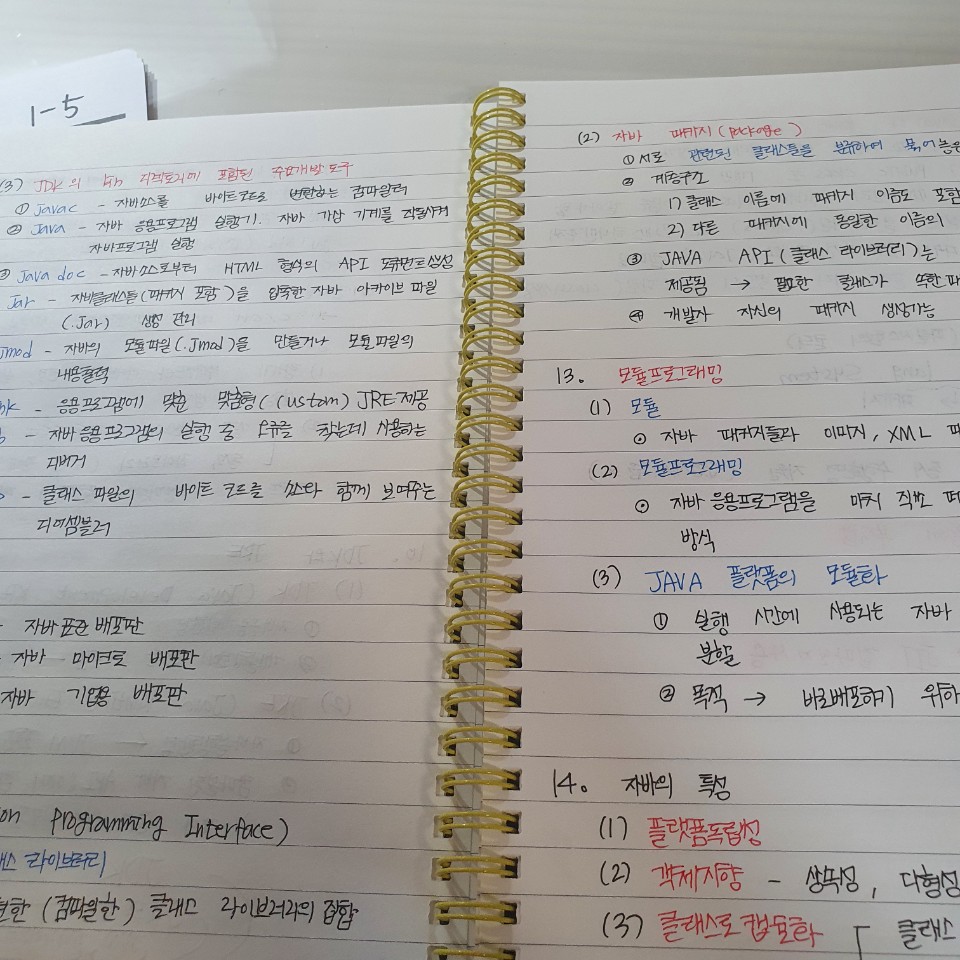 1-5
(3) JDK의 bin 디렉토리에 포함된 주요개발도구
① Javac - 자바소스를 바이트코드로 변환하는 컴파일러
② Java - 자바 응용프로그램 실행기. 자바 가상 기계를 작동시켜
자바프로그램 실행
③ Java doc - 자바소스로부터 HTML 형식의 API 도큐먼트생성
Jar - 자바클래스들(패키지 포함)을 압축한 자바 아카이브 파일
(.Jar) 생성 관리
Jmod - 자바의 모듈파일(.Jmod)을 만들거나 모듈파일의
내용출력
nk - 응용프로그램에 맞춘 맞춤형(Custom) JRE제공
- 자바응용프로그램의 실행 중 오류를 찾는데 사용하는
디버거
- 클래스 파일의 바이트 코드를 소스와 함께 보여주는
디어셈블러
- 자바표준배포판
- 자바 마이크로 배포판
자바 기업용 배포판
on Programming Interface)
래스 라이브러리
현한(컴파일한) 클래스 라이브러리의 집합
(2) 자바 패키지(package)
① 서로 관련된 클래스들을 분류하여 묶어놓은
② 계층구조
1) 클래스 이름에 패키지 이름도 포함
2) 다른 패키지에 동일한 이름의
③ JAVA API(클래스 라이브러리)는
제공됨 → 필요한 클래스가 속한 패
④ 개발자 자신의 패키지 생성가능
13. 모듈프로그래밍
(1) 모듈
⊙ 자바 패키지들과 이미지, XML 파
(2) 모듈프로그래밍
⊙ 자바응용프로그램을 마치 직소 퍼
방식
(3) JAVA 플랫폼의 모듈화
① 실행 시간에 사용되는 자바
분할
② 목적 → 바로배포하기 위하
14. 자바의 특성
(1) 플랫폼독립성
(2) 객체지향 - 상속성, 다형성
(3) 클래스로 캡슐화 클래스